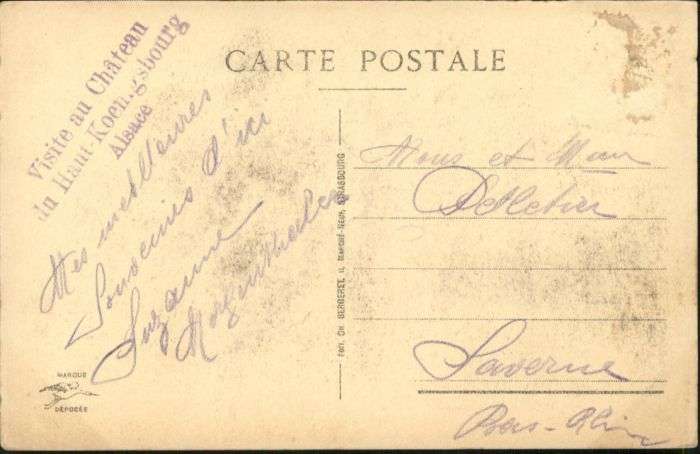 CARTE POSTALE
Visite au Château
du Haut-Kœnigsbourg
Alsace
Mes meilleures
Souvenirs d'ici
Suzanne
MARQUE
DÉPOSÉE
FDIT. CH. BERGERET, 11, MARCHÉ-NEUF, STRASBOURG
Mons et Mme
Pelletier
Saverne
Bas-Rhin